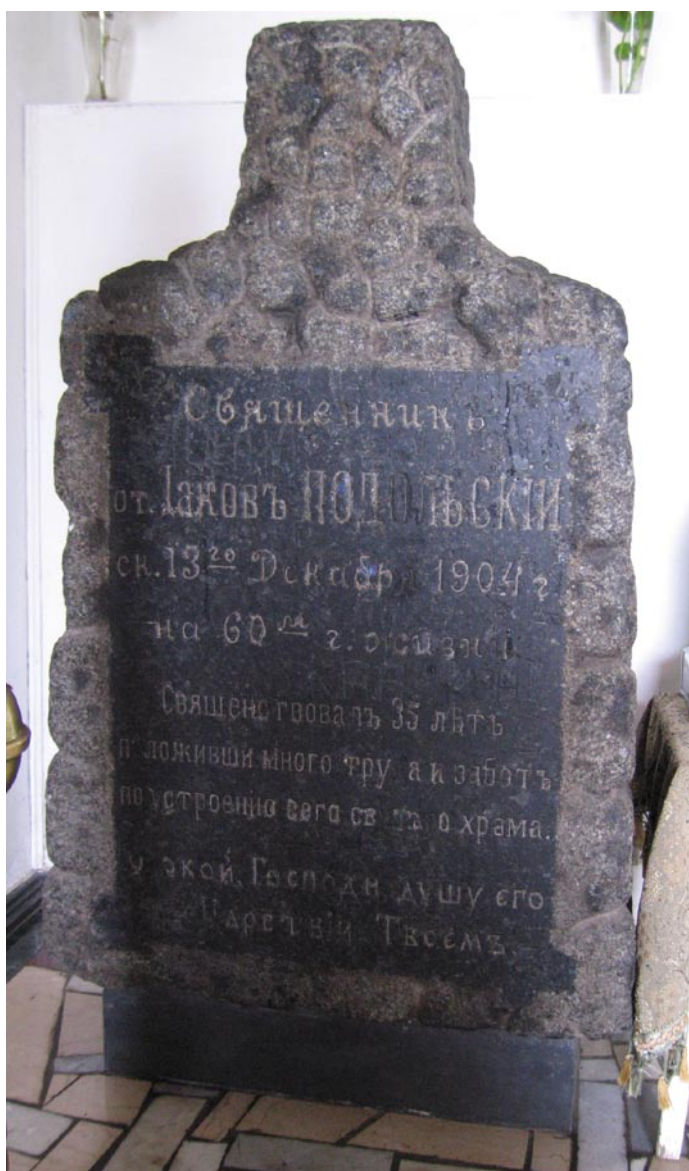 Священникъ
от. Іаковъ ПОДОЛЬСКІЙ
ск. 13го Декабря 1904 г.
на 60мъ г. жизни
Священствовалъ 35 лѣтъ
положивши много труда и заботъ
по устроенію сего святаго храма.
Упокой, Господи, душу его
Царствіи Твоемъ